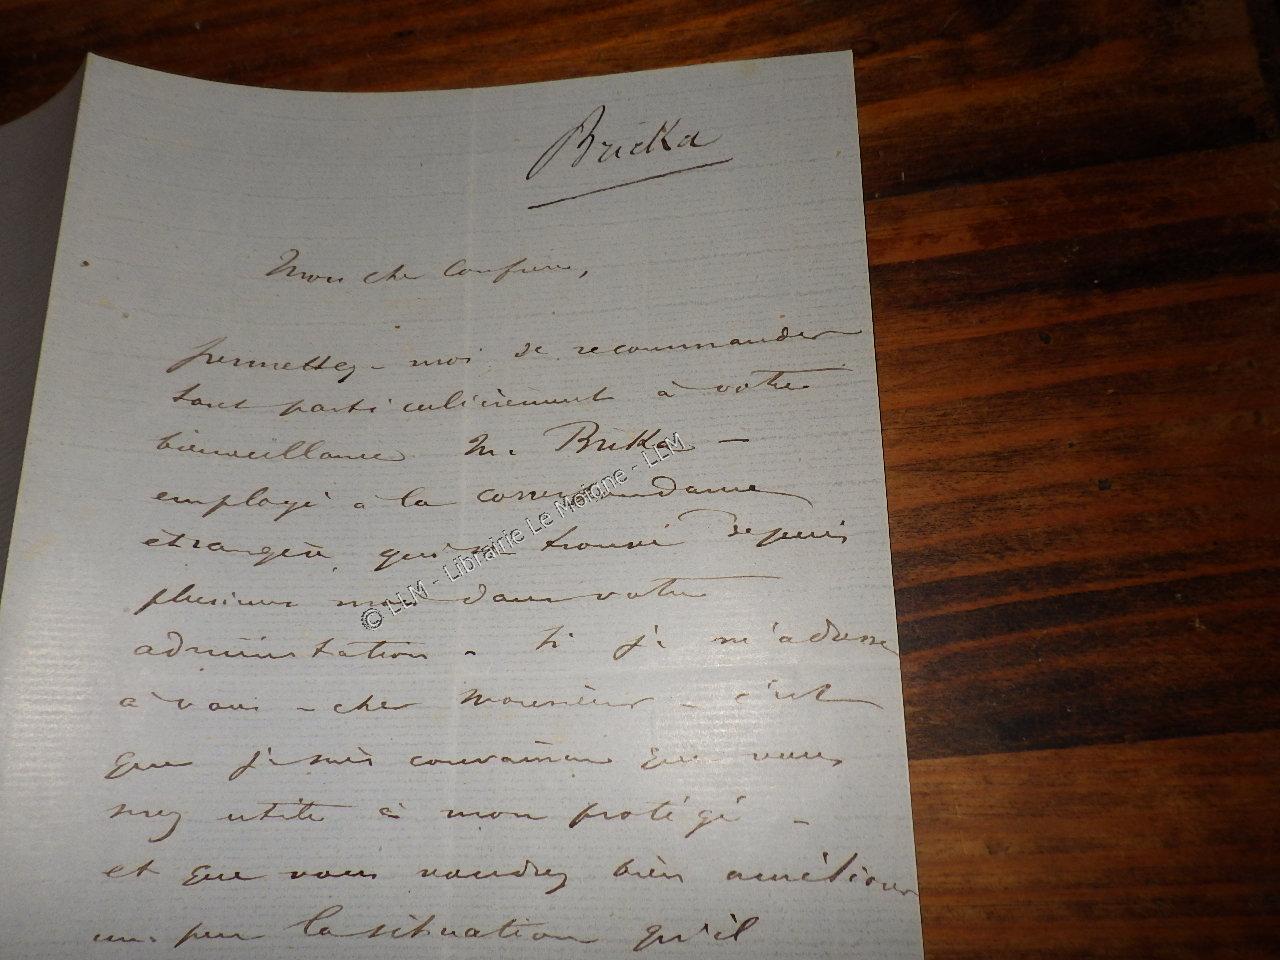 Bricka
Mon cher Confrère,
permettez-moi de recommander
tout particulièrement à votre
bienveillance M. Bricka –
employé à la correspondance
étrangère, qui se trouve depuis
plusieurs mois dans votre
administration – Si je m'adresse
à vous – cher Monsieur – c'est
que je suis convaincu que vous
serez utile à mon protégé –
et que vous voudrez bien améliorer
un peu la situation qu'il
© LLM - Librairie Le Moigne - LLM